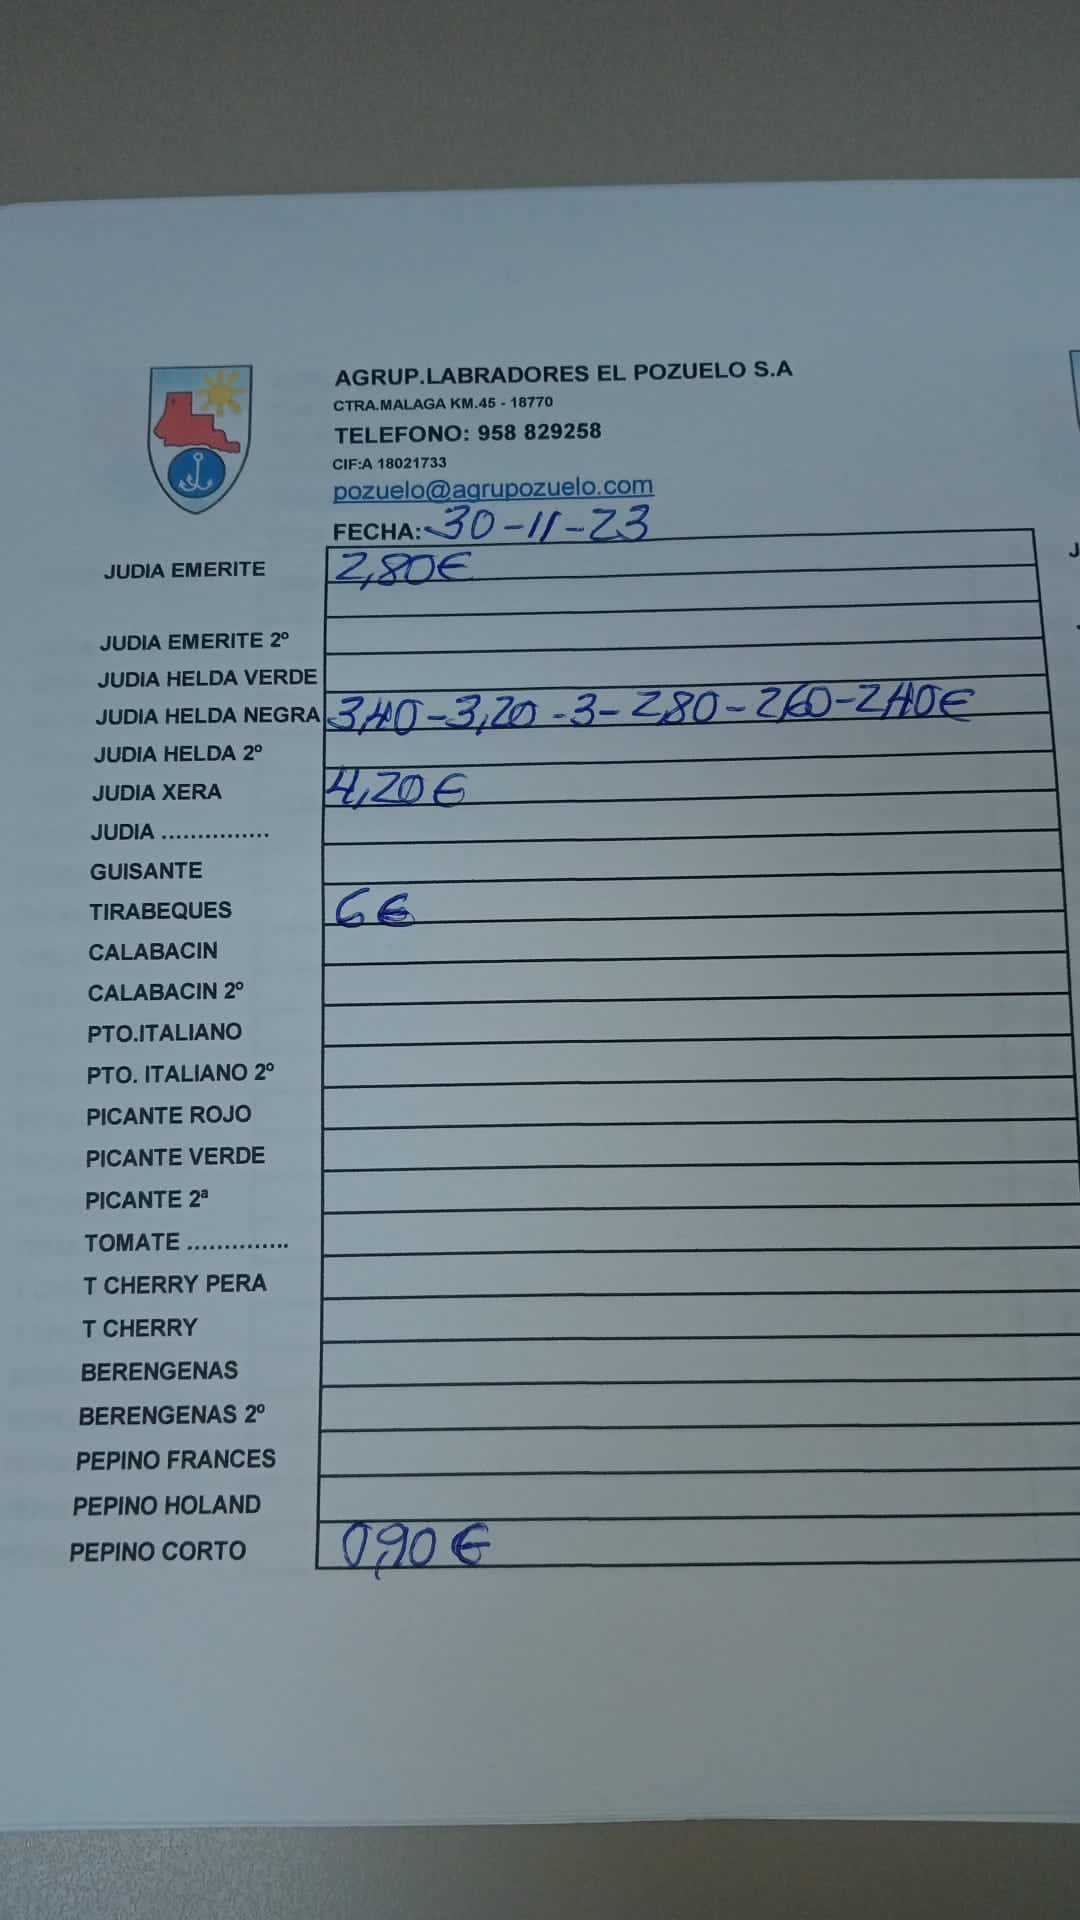 AGRUP.LABRADORES EL POZUELO S.A
CTRA.MALAGA KM.45 - 18770
TELEFONO: 958 829258
CIF:A 18021733
pozuelo@agrupozuelo.com
FECHA: 30-11-23
JUDIA EMERITE 2,80€
JUDIA EMERITE 2º
JUDIA HELDA VERDE
JUDIA HELDA NEGRA 3,40-3,20-3-2,80-2,60-2,40€
JUDIA HELDA 2º
JUDIA XERA 4,20€
JUDIA ...............
GUISANTE
TIRABEQUES 6€
CALABACIN
CALABACIN 2º
PTO.ITALIANO
PTO. ITALIANO 2º
PICANTE ROJO
PICANTE VERDE
PICANTE 2ª
TOMATE ..............
T CHERRY PERA
T CHERRY
BERENGENAS
BERENGENAS 2º
PEPINO FRANCES
PEPINO HOLAND
PEPINO CORTO 0,90€